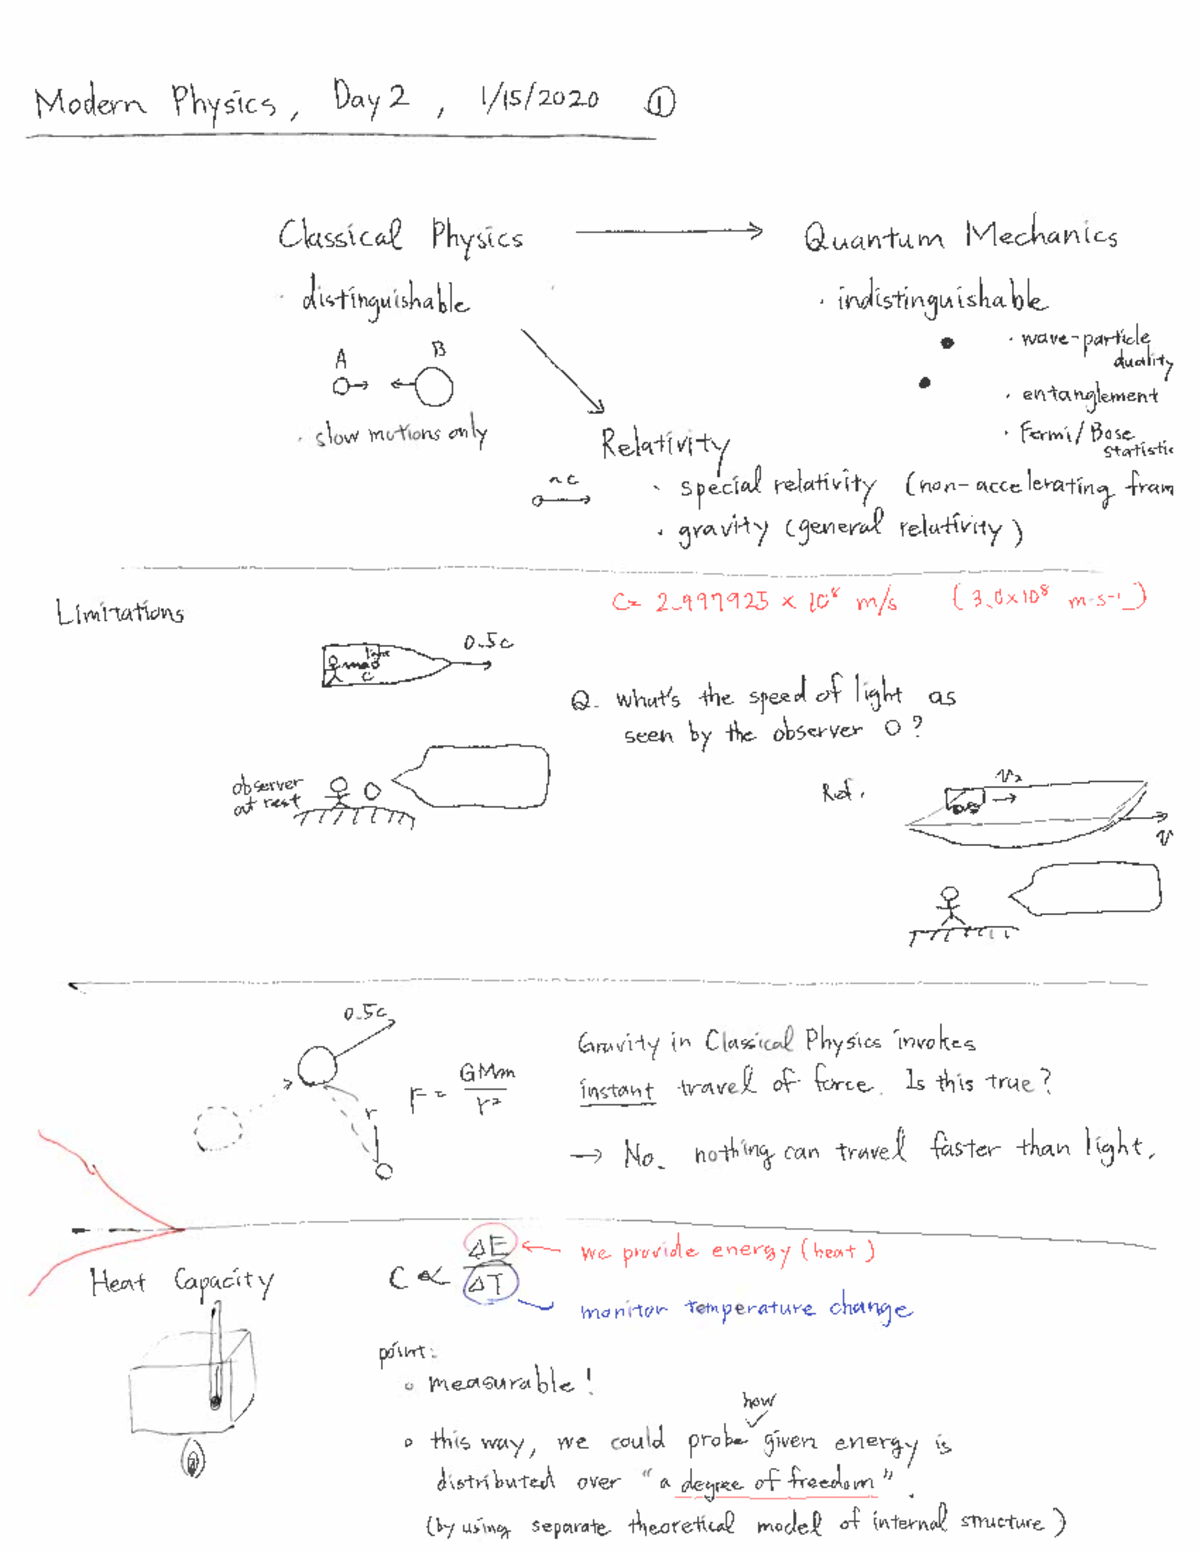 Modern Physics, Day 2, 1/15/2020 ①
Classical Physics → Quantum Mechanics
· distinguishable
· indistinguishable
A B
· wave-particle
duality
· entanglement
· Fermi/Bose
statistic
· slow motions only
Relativity
~c
· special relativity (non-accelerating fram
· gravity (general relativity)
Limitations
C= 2.997925 × 10⁸ m/s (3.0×10⁸ m·s⁻¹)
light
c
0.5c
Q. what's the speed of light as
seen by the observer O?
observer
at rest
O
Ref.
v₂
v
0.5c
r
F = GMm/r²
Gravity in Classical Physics invokes
instant travel of force. Is this true?
→ No. nothing can travel faster than light.
Heat Capacity
C ∝ ΔE/ΔT
← we provide energy (heat)
monitor temperature change
point:
∘ measurable!
how
∘ this way, we could probe given energy is
distributed over "a degree of freedom".
(by using separate theoretical model of internal structure)